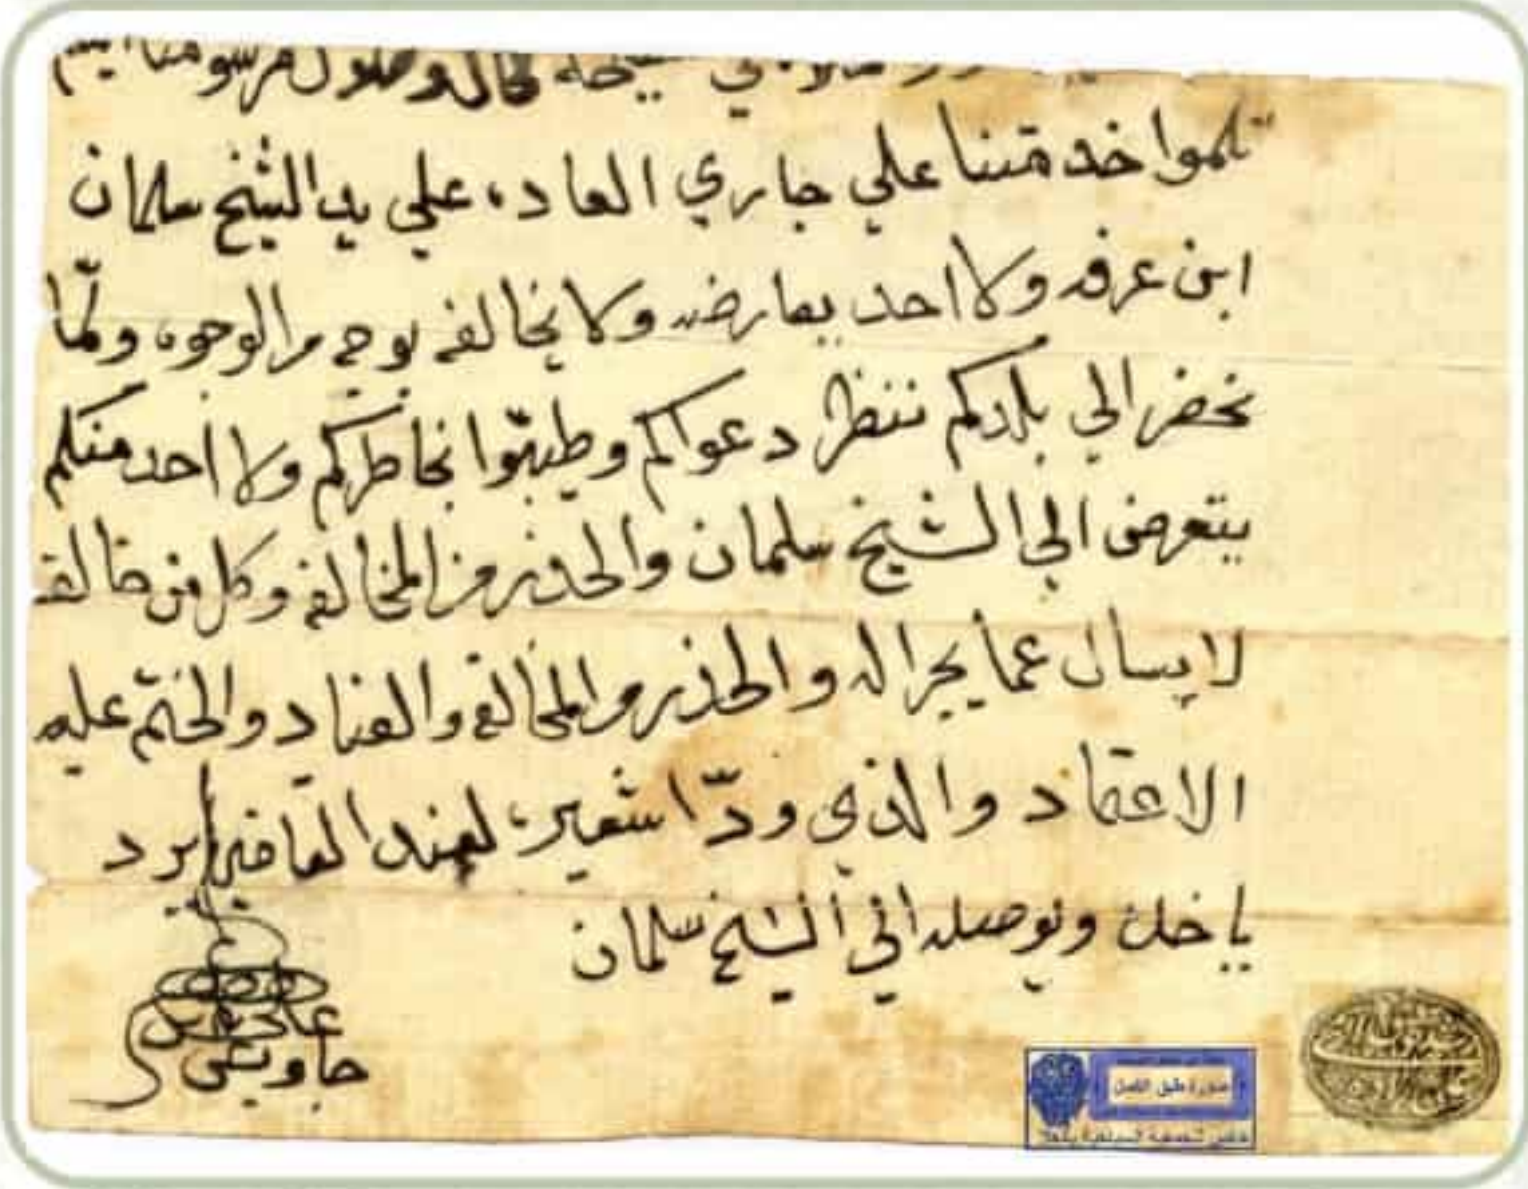 في صبيحة حال وصول مرسومنا اليكم
تلموا خدمتنا علي جاري العاده علي يد الشيخ سلمان
ابن عرفه ولا احد يعارضه ولا يخالفه بوجه من الوجوه ولمّا
نحضر الي بلدكم ننظر دعواكم وطيبّوا بخاطركم ولا احد منكم
يتعرض الي الشيخ سلمان والحذر من المخالفه وكل من خالف
لا يسال عما يجرا له والحذر من المخالفة والعناد والختم عليه
الاعتماد والذي ودّا شعير لعند العافيه يرد
ياخذه ونوصله الي الشيخ سلمان
جاويش
صورة طبق الاصل